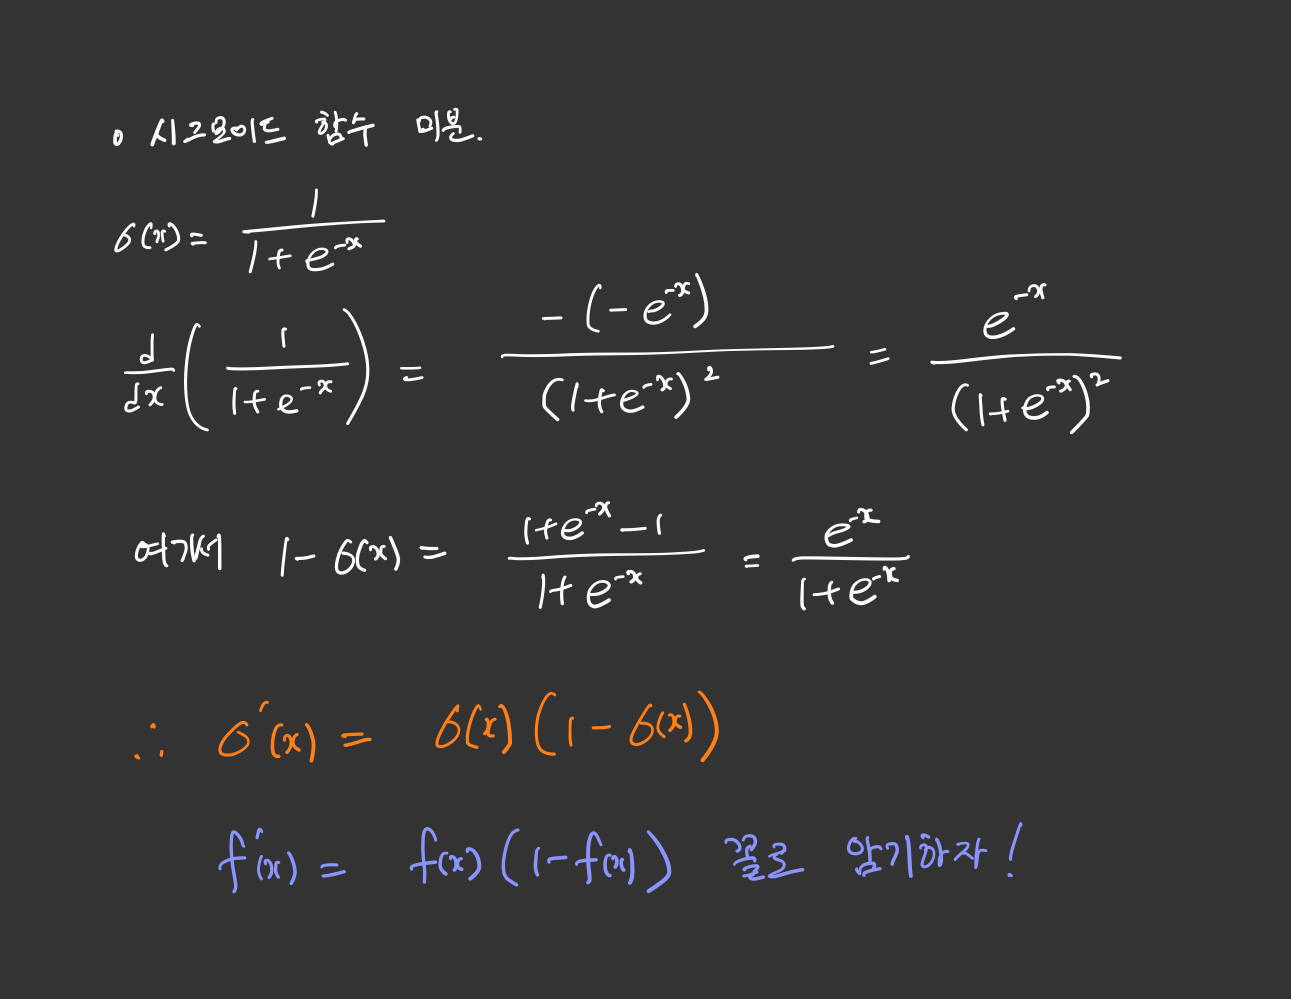 • 시그모이드 함수 미분.
σ(x) = 1/(1+e^{-x})
d/dx (1/(1+e^{-x})) = -(-e^{-x})/(1+e^{-x})^2 = e^{-x}/(1+e^{-x})^2
여기서 1-σ(x) = (1+e^{-x}-1)/(1+e^{-x}) = e^{-x}/(1+e^{-x})
∴ σ'(x) = σ(x)(1-σ(x))
f'(x) = f(x)(1-f(x)) 꼴로 암기하자!